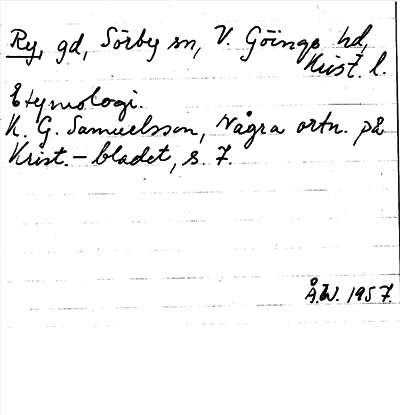 Ry, gd, Sörby sn, V. Göinge hd,
Krist. l.
Etymologi.
K. G. Samuelsson, Några ortn. på
Krist.-bladet, s. 7.
Å.W. 1957.